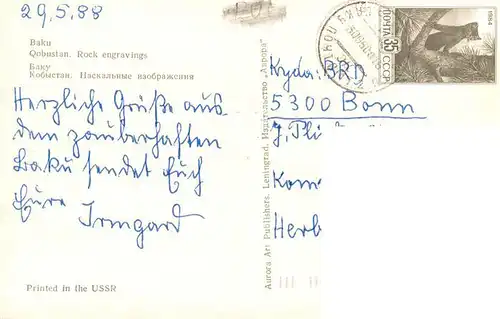 29.5.88
Baku
Qobustan. Rock engravings
Баку
Кобыстан. Наскальные изображения
Herzliche Grüße aus
dem zauberhaften
Baku sendet Euch
Eure Irmgard
Printed in the USSR
Aurora Art Publishers. Leningrad. Издательство „Аврора“
Куда: BRD
5300 Bonn
Kom
Herb
1984
ПОЧТА
35
СССР